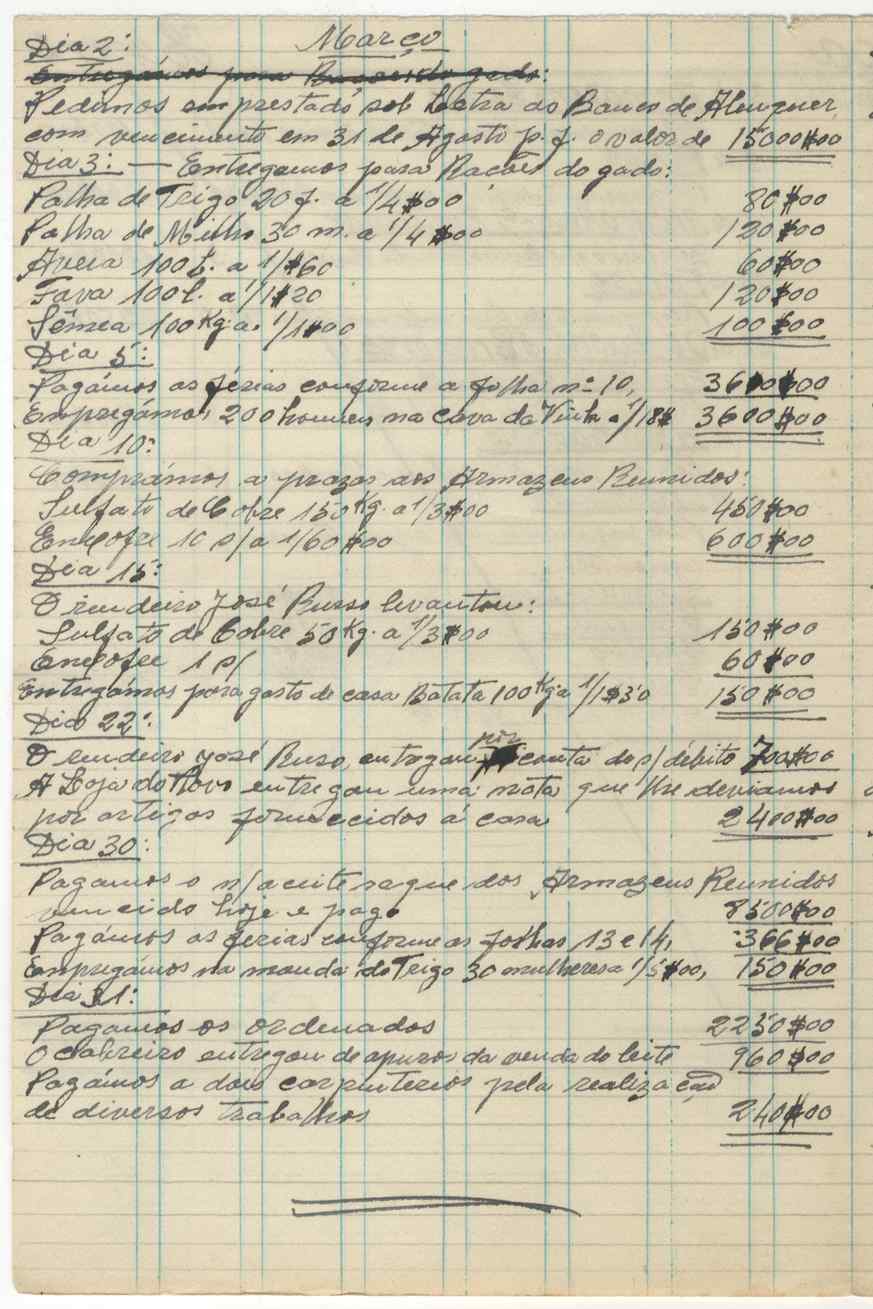 Março
Dia 2:
Entregámos para Rações do gado:
Pedimos emprestado sob Lectra do Banco de Alenquer,
com vencimento em 31 de Agosto p. f. o valor de 15000$00
Dia 3: — Entregamos para Rações do gado:
Palha de Trigo 20 f. a 1/4$00 80$00
Palha de Milho 30 m. a 1/4$00 120$00
Aveia 100 L. a 1/$60 60$00
Fava 100 l. a 1/1$20 120$00
Sêmea 100 Kg a 1/1$00 100$00
Dia 5:
Pagámos as férias conforme a folha nº 10, 3600$00
Empregámos 200 homens na cava da Vinha a 1/18$ 3600$00
Dia 10:
Comprámos a prazo aos Armazens Reunidos:
Sulfato de Cobre 150 Kg. a 1/3$00 450$00
Enxofre 10 s/ a 1/60$00 600$00
Dia 15:
O rendeiro José Russo levantou:
Sulfato de Cobre 50 Kg. a 1/3$00 150$00
Enxofre 1 s/ 60$00
Entregámos para gasto de casa Batata 100 Kg a 1/1$50 150$00
Dia 22:
O rendeiro José Russo, entregou por conta do s/ débito 700$00
A Loja do Povo entregou uma nota que lhe deviamos
por artigos fornecidos á casa 2400$00
Dia 30:
Pagamos o n/ aceite saque dos Armazens Reunidos
vencido hoje e pago 8500$00
Pagámos as férias conforme as folhas 13 e 14, 366$00
Empregámos na monda do Trigo 30 mulheres a 1/5$00, 150$00
Dia 31:
Pagamos os ordenados 2250$00
O Cabreiro entregou de apuros da venda do leite 960$00
Pagámos a dois carpinteiros pela realização
de diversos trabalhos 240$00